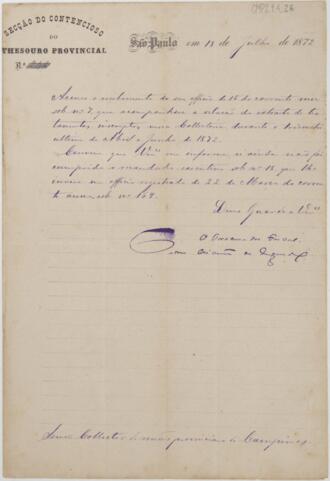 SECÇÃO DO CONTENCIOSO
DO
THESOURO PROVINCIAL
São Paulo em 18 de Julho de 1872
Accuso o recebimento do seo officio de 16 do corrente mez
sob nº 7, que acompanhou a relação de extracto de
nessa Collectoria durante o trimestre
ultimo de Abril a Junho de 1872.
Convem que Vmce me informe si ainda não foi
cumprido o mandado executivo sob nº 18, que lhe
enviei em officio registrado de 22 de Março do corren-
te anno sob nº 149.
Deus Guarde a Vmce
O Procurador Fiscal
Senr. Collector de rendas provinciaes de Campinas